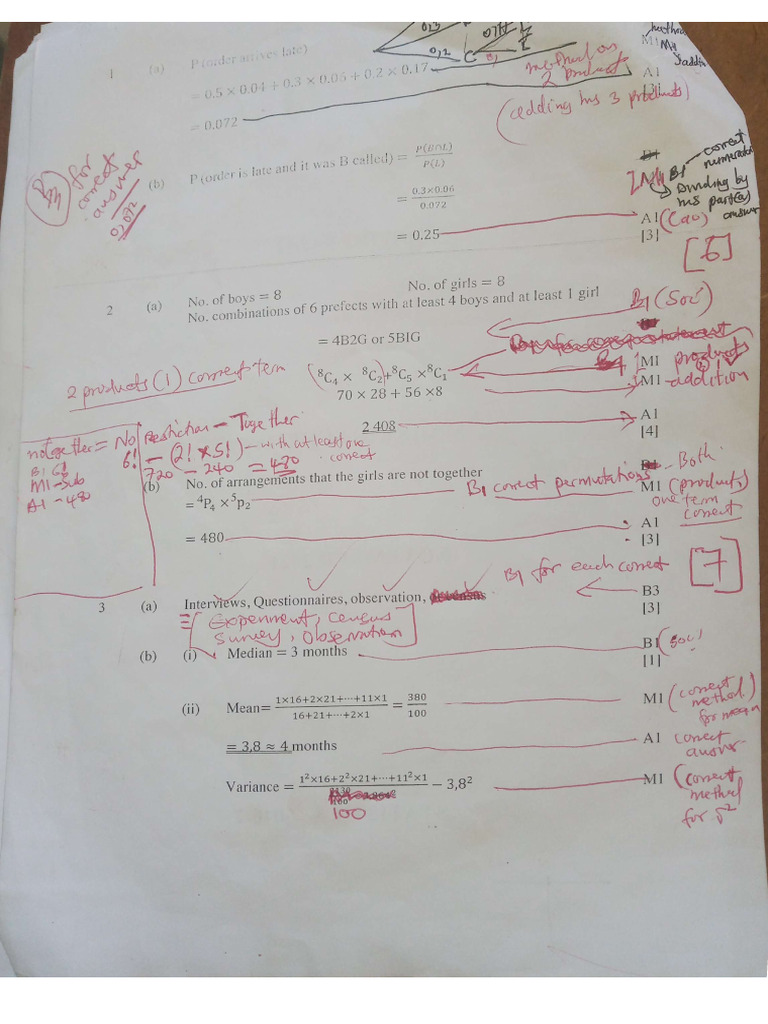 0,3
0,2 C 0,
method
M1 M1
saddn
1 (a) P (order arrives late)
= 0.5 × 0.04 + 0.3 × 0.06 + 0.2 × 0.17
method on 2 products
A1
(adding his 3 products)
= 0.072
B3 for correct answer 0,072
(b) P (order is late and it was B called) = P(B∩L)/P(L)
M1 B1 correct numerator
Dividing by his part (a) answer
= 0.3×0.06/0.072
= 0.25
A1 (Cao)
[3]
[6]
2 (a) No. of boys = 8 No. of girls = 8
No. combinations of 6 prefects with at least 4 boys and at least 1 girl
B1 (soi)
= 4B2G or 5BIG
2 products (1) correct term
(⁸C₄ × ⁸C₂)+⁸C₅ ×⁸C₁
M1 products
70 × 28 + 56 ×8
M1 - addition
2 408
A1
[4]
not together = No Restriction - Together
6! - (2! × 5!) - with at least one correct
720 - 240 = 480
B1 6!
M1 - sub
A1 - 480
(b) No. of arrangements that the girls are not together
B1 correct permutations
Both
= ⁴P₄ ×⁵p₂
M1 (products)
one term correct
A1
= 480
[3]
[7]
B1 for each correct
3 (a) Interviews, Questionnaires, observation,
B3
[3]
= [Experiment, census
survey, observation]
(b) (i) Median = 3 months
B1 (soi)
[1]
(ii) Mean= 1×16+2×21+⋯+11×1/16+21+⋯+2×1 = 380/100
M1 (correct method for mean
= 3,8 ≈ 4 months
A1 correct answer
Variance = 1²×16+2²×21+⋯+11²×1/100 − 3,8²
M1 (correct method for δ²